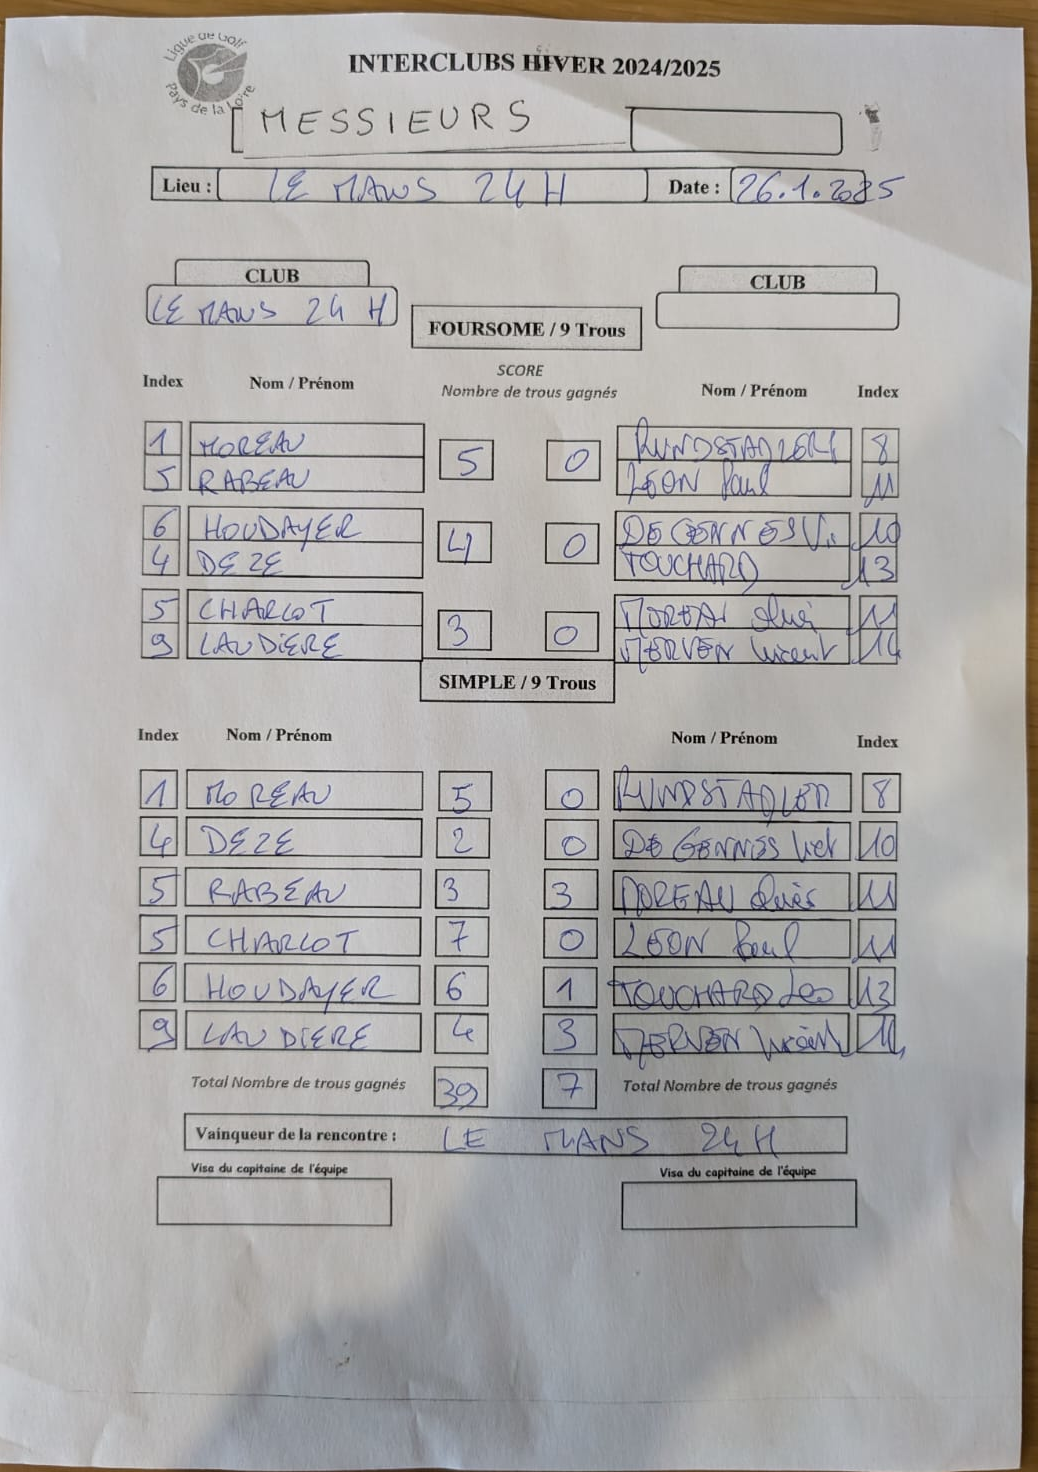 Ligue de Golf
Pays de la Loire
INTERCLUBS HIVER 2024/2025
MESSIEURS
Lieu : LE MANS 24 H Date : 26.1.2025
CLUB CLUB
LE MANS 24 H
FOURSOME / 9 Trous
SCORE
Index Nom / Prénom Nombre de trous gagnés Nom / Prénom Index
1 MOREAU 5 0 RUNDSTADLER 8
5 RABEAU LEON Paul 11
6 HOUDAYER 4 0 DE GENNES V. 10
4 DEZE TOUCHARD 13
5 CHARLOT 3 0 MOREAU 11
9 LAUDIERE MERVEN Vincent 14
SIMPLE / 9 Trous
Index Nom / Prénom Nom / Prénom Index
1 MOREAU 5 0 RUNDSTADLER 8
4 DEZE 2 0 DE GENNES 10
5 RABEAU 3 3 MOREAU 11
5 CHARLOT 7 0 LEON Paul 11
6 HOUDAYER 6 1 TOUCHARD Leo 13
9 LAUDIERE 4 3 MERVEN 14
Total Nombre de trous gagnés 39 7 Total Nombre de trous gagnés
Vainqueur de la rencontre : LE MANS 24 H
Visa du capitaine de l'équipe Visa du capitaine de l'équipe